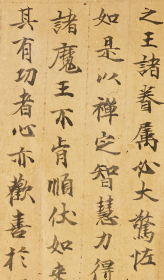 之王諸眷屬必大驚恠
如是以禪定智慧力得
諸魔王不肯順伏如来
其有功者心亦歡喜於